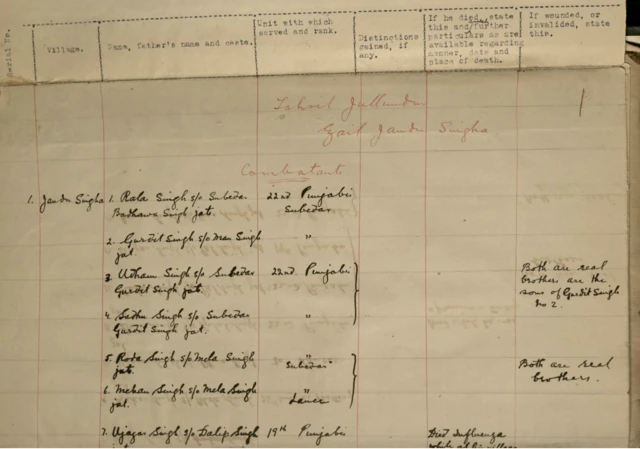 Serial No.
Village.
Name, father's name and caste.
Unit with which
served and rank.
Distinctions
gained, if
any.
If he died, state
this and further
particulars as are
available regarding
manner, date and
place of death.
If wounded, or
invalided, state
this.
1
Tahsil Jullundur
Zail Jandu Singha
Combatants
1. Jandu Singha 1. Rala Singh s/o Subedar 22nd Punjabis
Badhawa Singh jat. Subedar
2. Gurdit Singh s/o Man Singh "
jat.
3. Udham Singh s/o Subedar 22nd Punjabis
Gurdit Singh jat.
Both are real
brothers are the
sons of Gurdit Singh
No 2.
4. Sadhu Singh s/o Subedar "
Gurdit Singh jat.
5. Roda Singh s/o Mela Singh "
jat. Subedar
Both are real
brothers.
6. Mehan Singh s/o Mela Singh "
jat. Lance
7. Ujagar Singh s/o Dalip Singh 19th Punjabis Died Influenza
while at his village